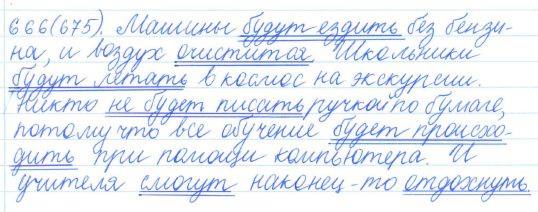 666(675). Машины будут ездить без бензи-
на, и воздух очистится. Школьники
будут летать в космос на экскурсии.
Никто не будет писать ручкой по бумаге,
потому что все обучение будет происхо-
дить при помощи компьютера. И
учителя смогут наконец-то отдохнуть.